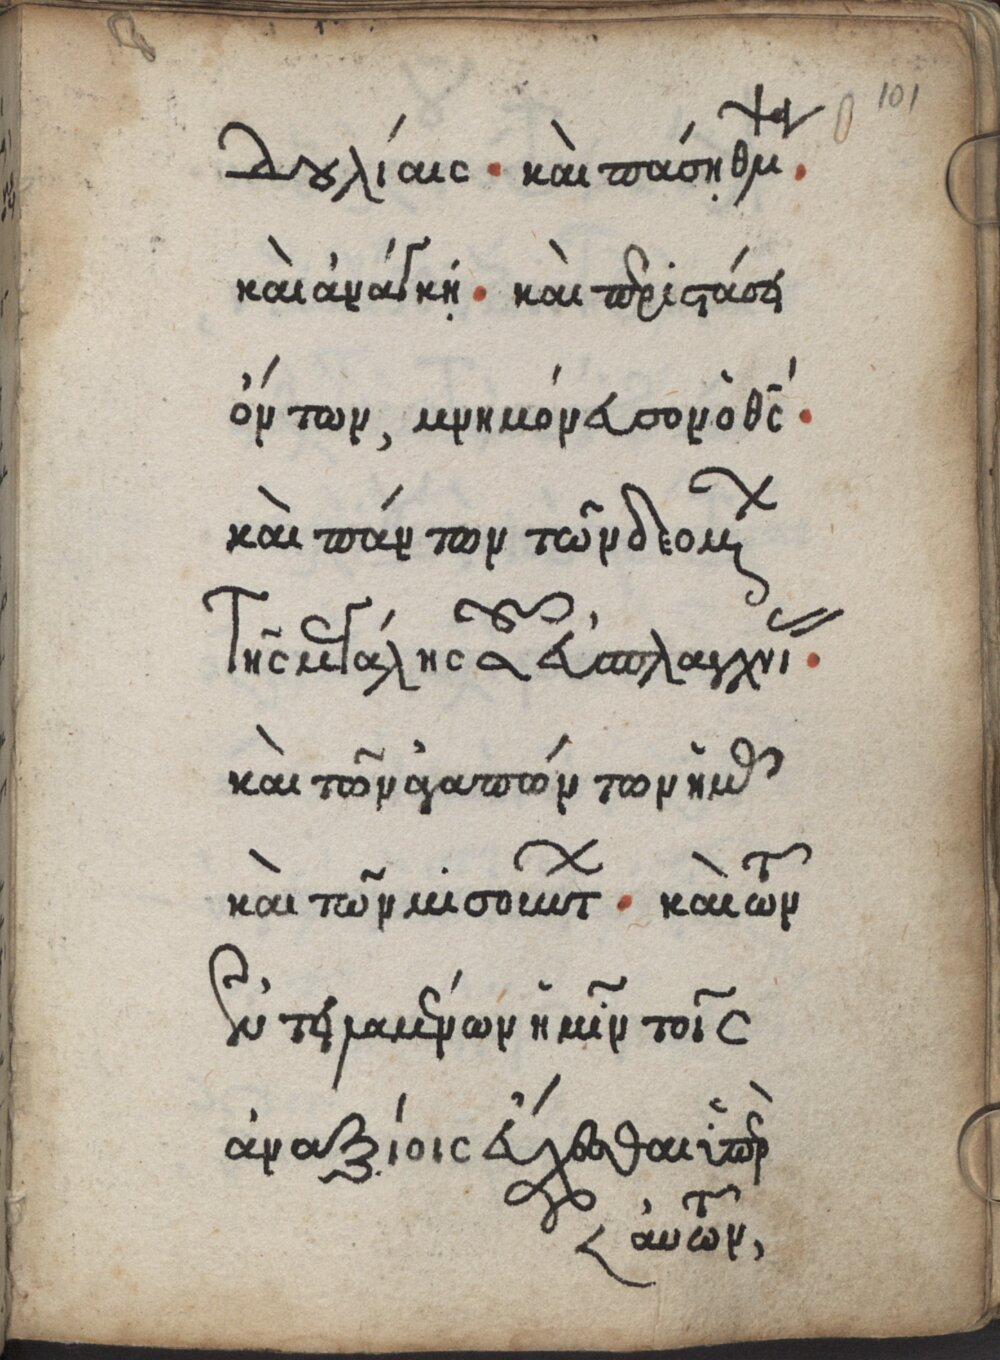 101
δουλίαις · καὶ πάσῃ θλίψ ·
καὶ ἀνάγκῃ · καὶ περιστάσει
ὄντων, μνημόνευσον ὁ θς ·
καὶ πάντων τῶν δεομέν
τῆς μεγάλης σου εὐσπλαγχνίας ·
καὶ τῶν ἀγαπώντων ἡμᾶς
καὶ τῶν μισούντ · καὶ τῶν
ἐντειλαμένων ἡμῖν τοῖς
ἀναξίοις εὔχεσθαι ὑπὲρ
αὐτῶν,